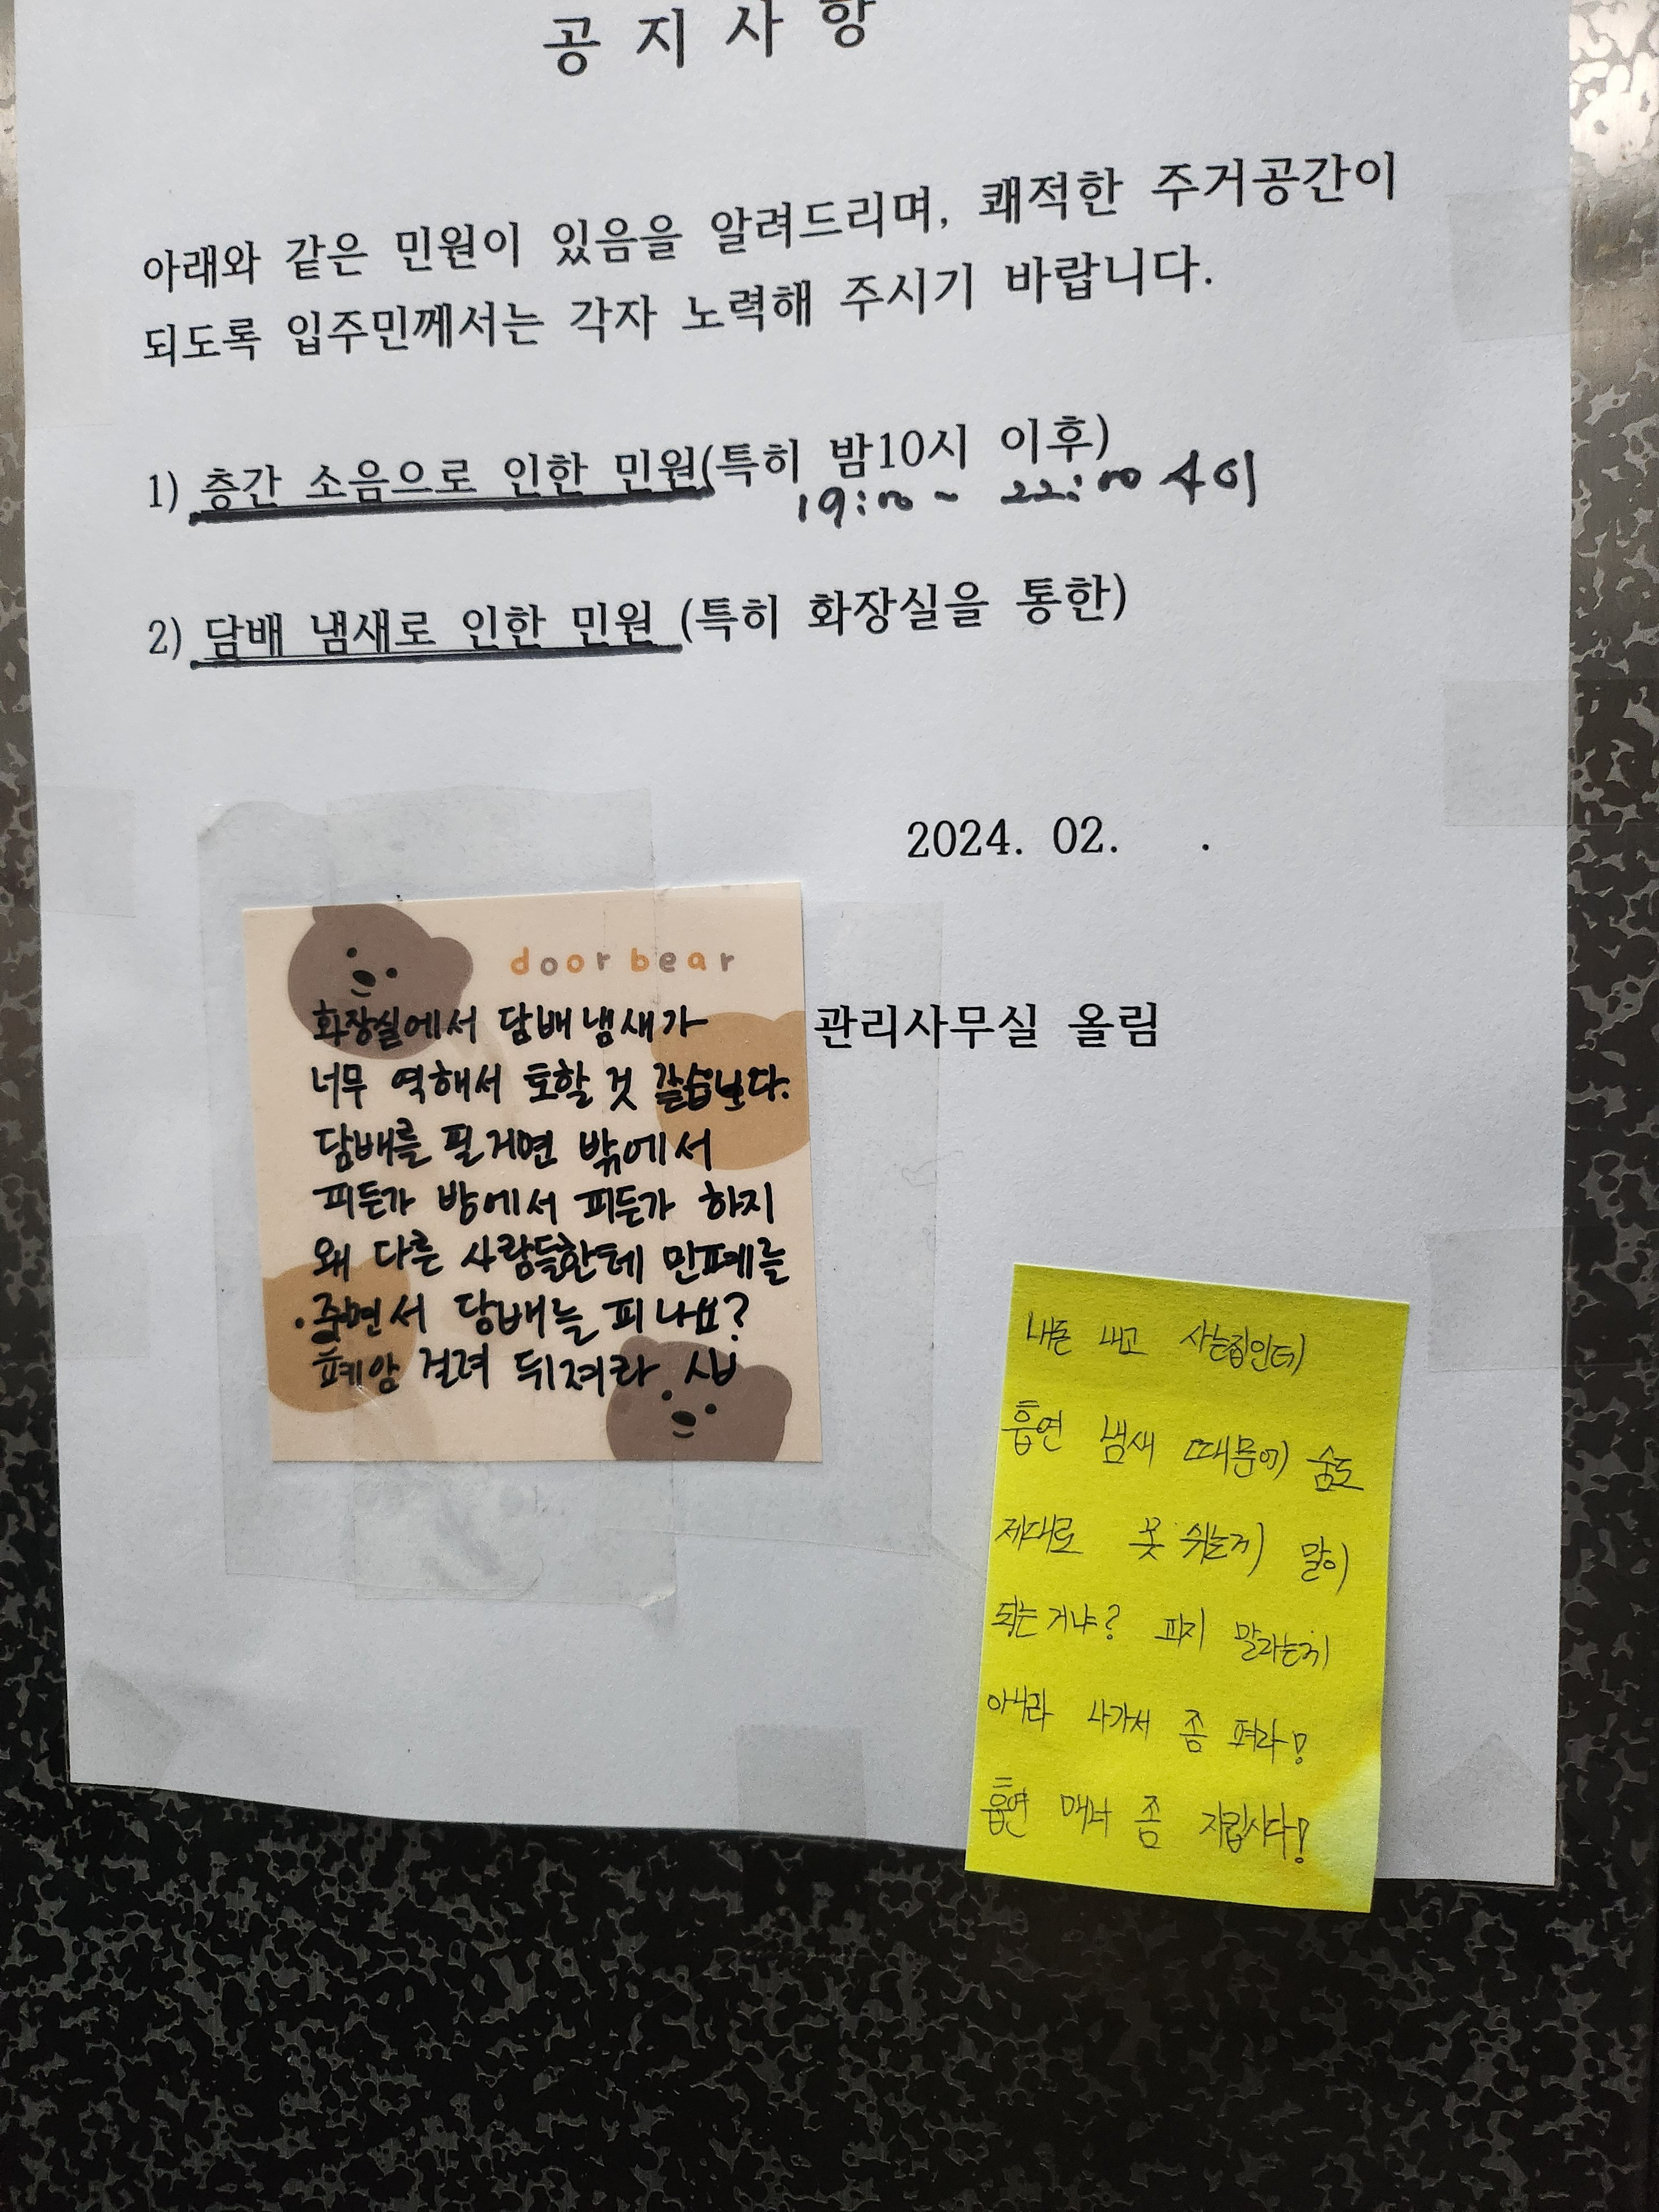 공 지 사 항
아래와 같은 민원이 있음을 알려드리며, 쾌적한 주거공간이
되도록 입주민께서는 각자 노력해 주시기 바랍니다.
1) 층간 소음으로 인한 민원(특히 밤10시 이후)
19:00 ~ 22:00 사이
2) 담배 냄새로 인한 민원 (특히 화장실을 통한)
2024. 02. .
관리사무실 올림
door bear
화장실에서 담배냄새가
너무 역해서 토할 것 같습니다.
담배를 필거면 밖에서
피든가 방에서 피든가 하지
왜 다른 사람들한테 민폐를
주면서 담배를 피나요?
폐암 걸려 뒤져라. 시ㅂ
내돈 내고 사는집인데
흡연 냄새 때문에 숨도
제대로 못 쉬는게 말이
되는거냐? 피지 말라는게
아니라 나가서 좀 펴라!
흡연 매너 좀 지킵시다!